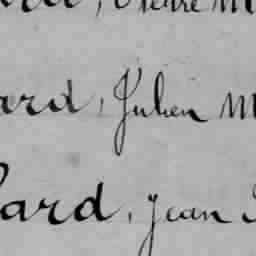 ard, Pierre M
ard, Julien M
ard, Jean